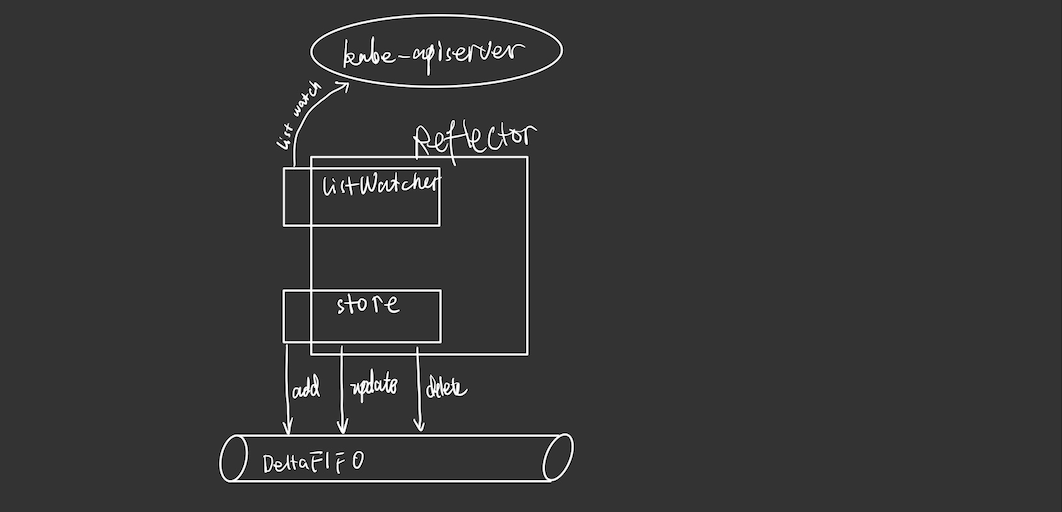 kube-apiserver
list watch
Reflector
listWatcher
store
add
update
delete
DeltaFIFO